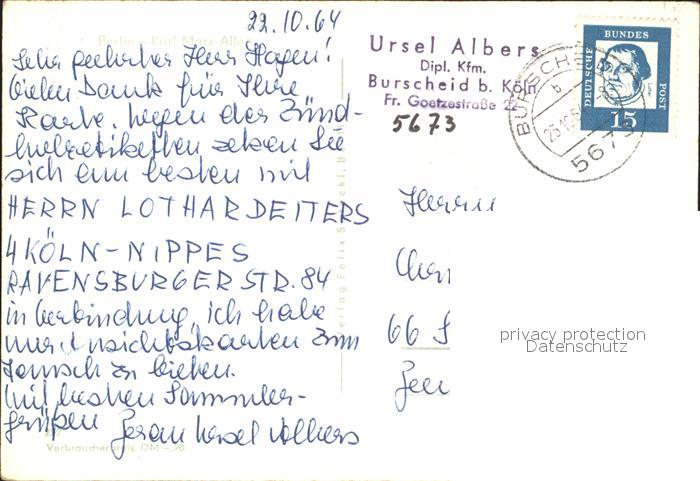 22.10.64
Berlin - Karl-Marx-Allee
Sehr geehrter Herr Hagen!
Vielen Dank für Ihre
Karte. Wegen der Zünd-
holzetiketten setzen Sie
sich am besten mit
HERRN LOTHAR DEITERS
4 KÖLN-NIPPES
RAVENSBURGER STR. 84
in Verbindung, ich habe
nur Ansichtskarten zum
Tausch zu bieten.
Mit besten Sammler-
grüßen
Ursel Albers
Verbraucherpreis DM -,20
Verlag Felix
Ursel Albers
Dipl. Kfm.
Burscheid b. Köln
Fr. Goetzestraße 22
5673
DEUTSCHE BUNDES POST
15
BURSCHEID
b
5673
Herrn
66 S
privacy protection
Datenschutz